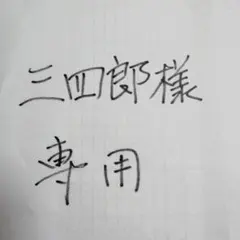 三四郎様
専用